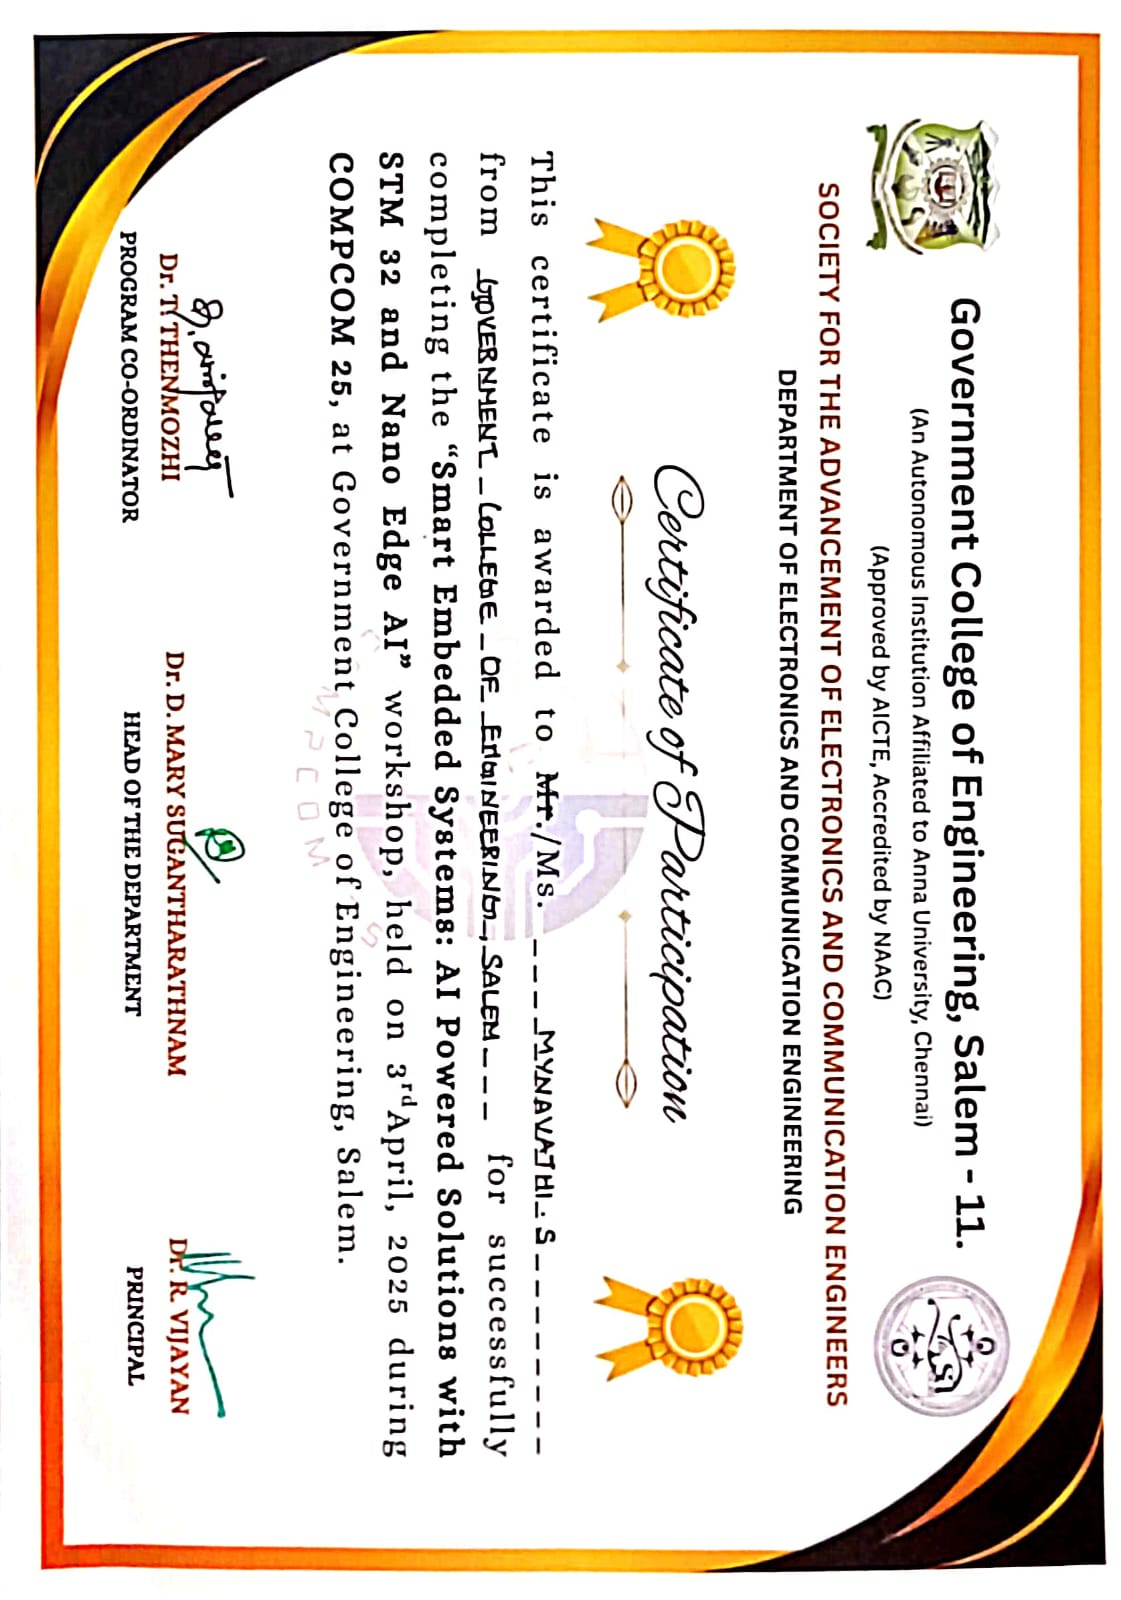 Government College of Engineering, Salem - 11.
(An Autonomous Institution Affiliated to Anna University, Chennai)
(Approved by AICTE, Accredited by NAAC)
SOCIETY FOR THE ADVANCEMENT OF ELECTRONICS AND COMMUNICATION ENGINEERS
DEPARTMENT OF ELECTRONICS AND COMMUNICATION ENGINEERING
Certificate of Participation
This certificate is awarded to Mr./Ms. MYNAVATHI. S
from GOVERNMENT COLLEGE OF ENGINEERING, SALEM for successfully
completing the “Smart Embedded Systems: AI Powered Solutions with
STM 32 and Nano Edge AI” workshop, held on 3rd April, 2025 during
COMPCOM 25, at Government College of Engineering, Salem.
Dr. T. THENMOZHI Dr. D. MARY SUGANTHARATHNAM Dr. R. VIJAYAN
PROGRAM CO-ORDINATOR HEAD OF THE DEPARTMENT PRINCIPAL